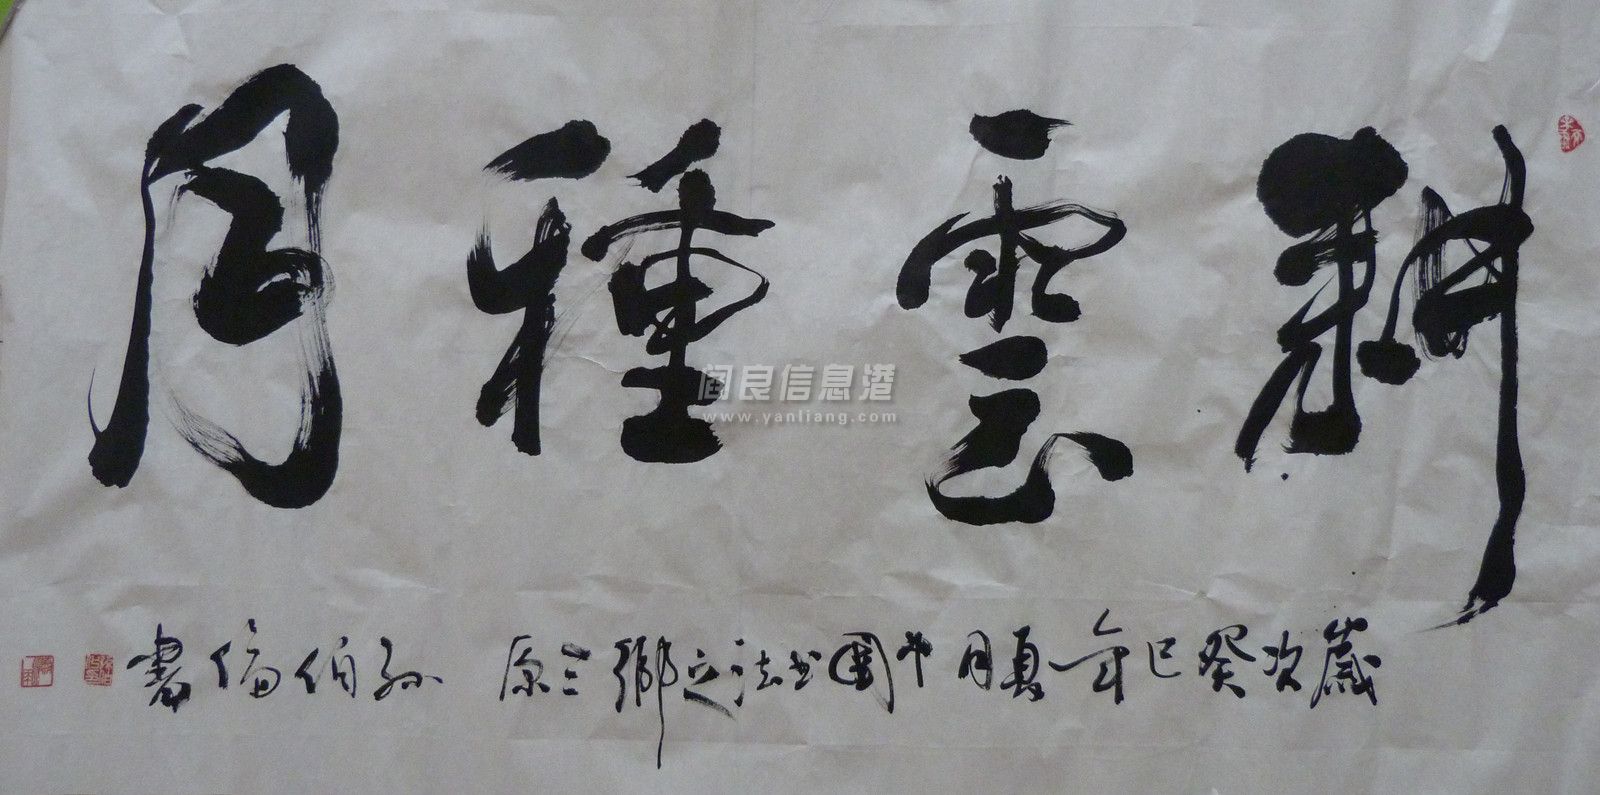 耕雲種月
歲次癸巳年夏月中國书法之鄉三原孫伯儒書
阎良信息港
www.yanliang.com